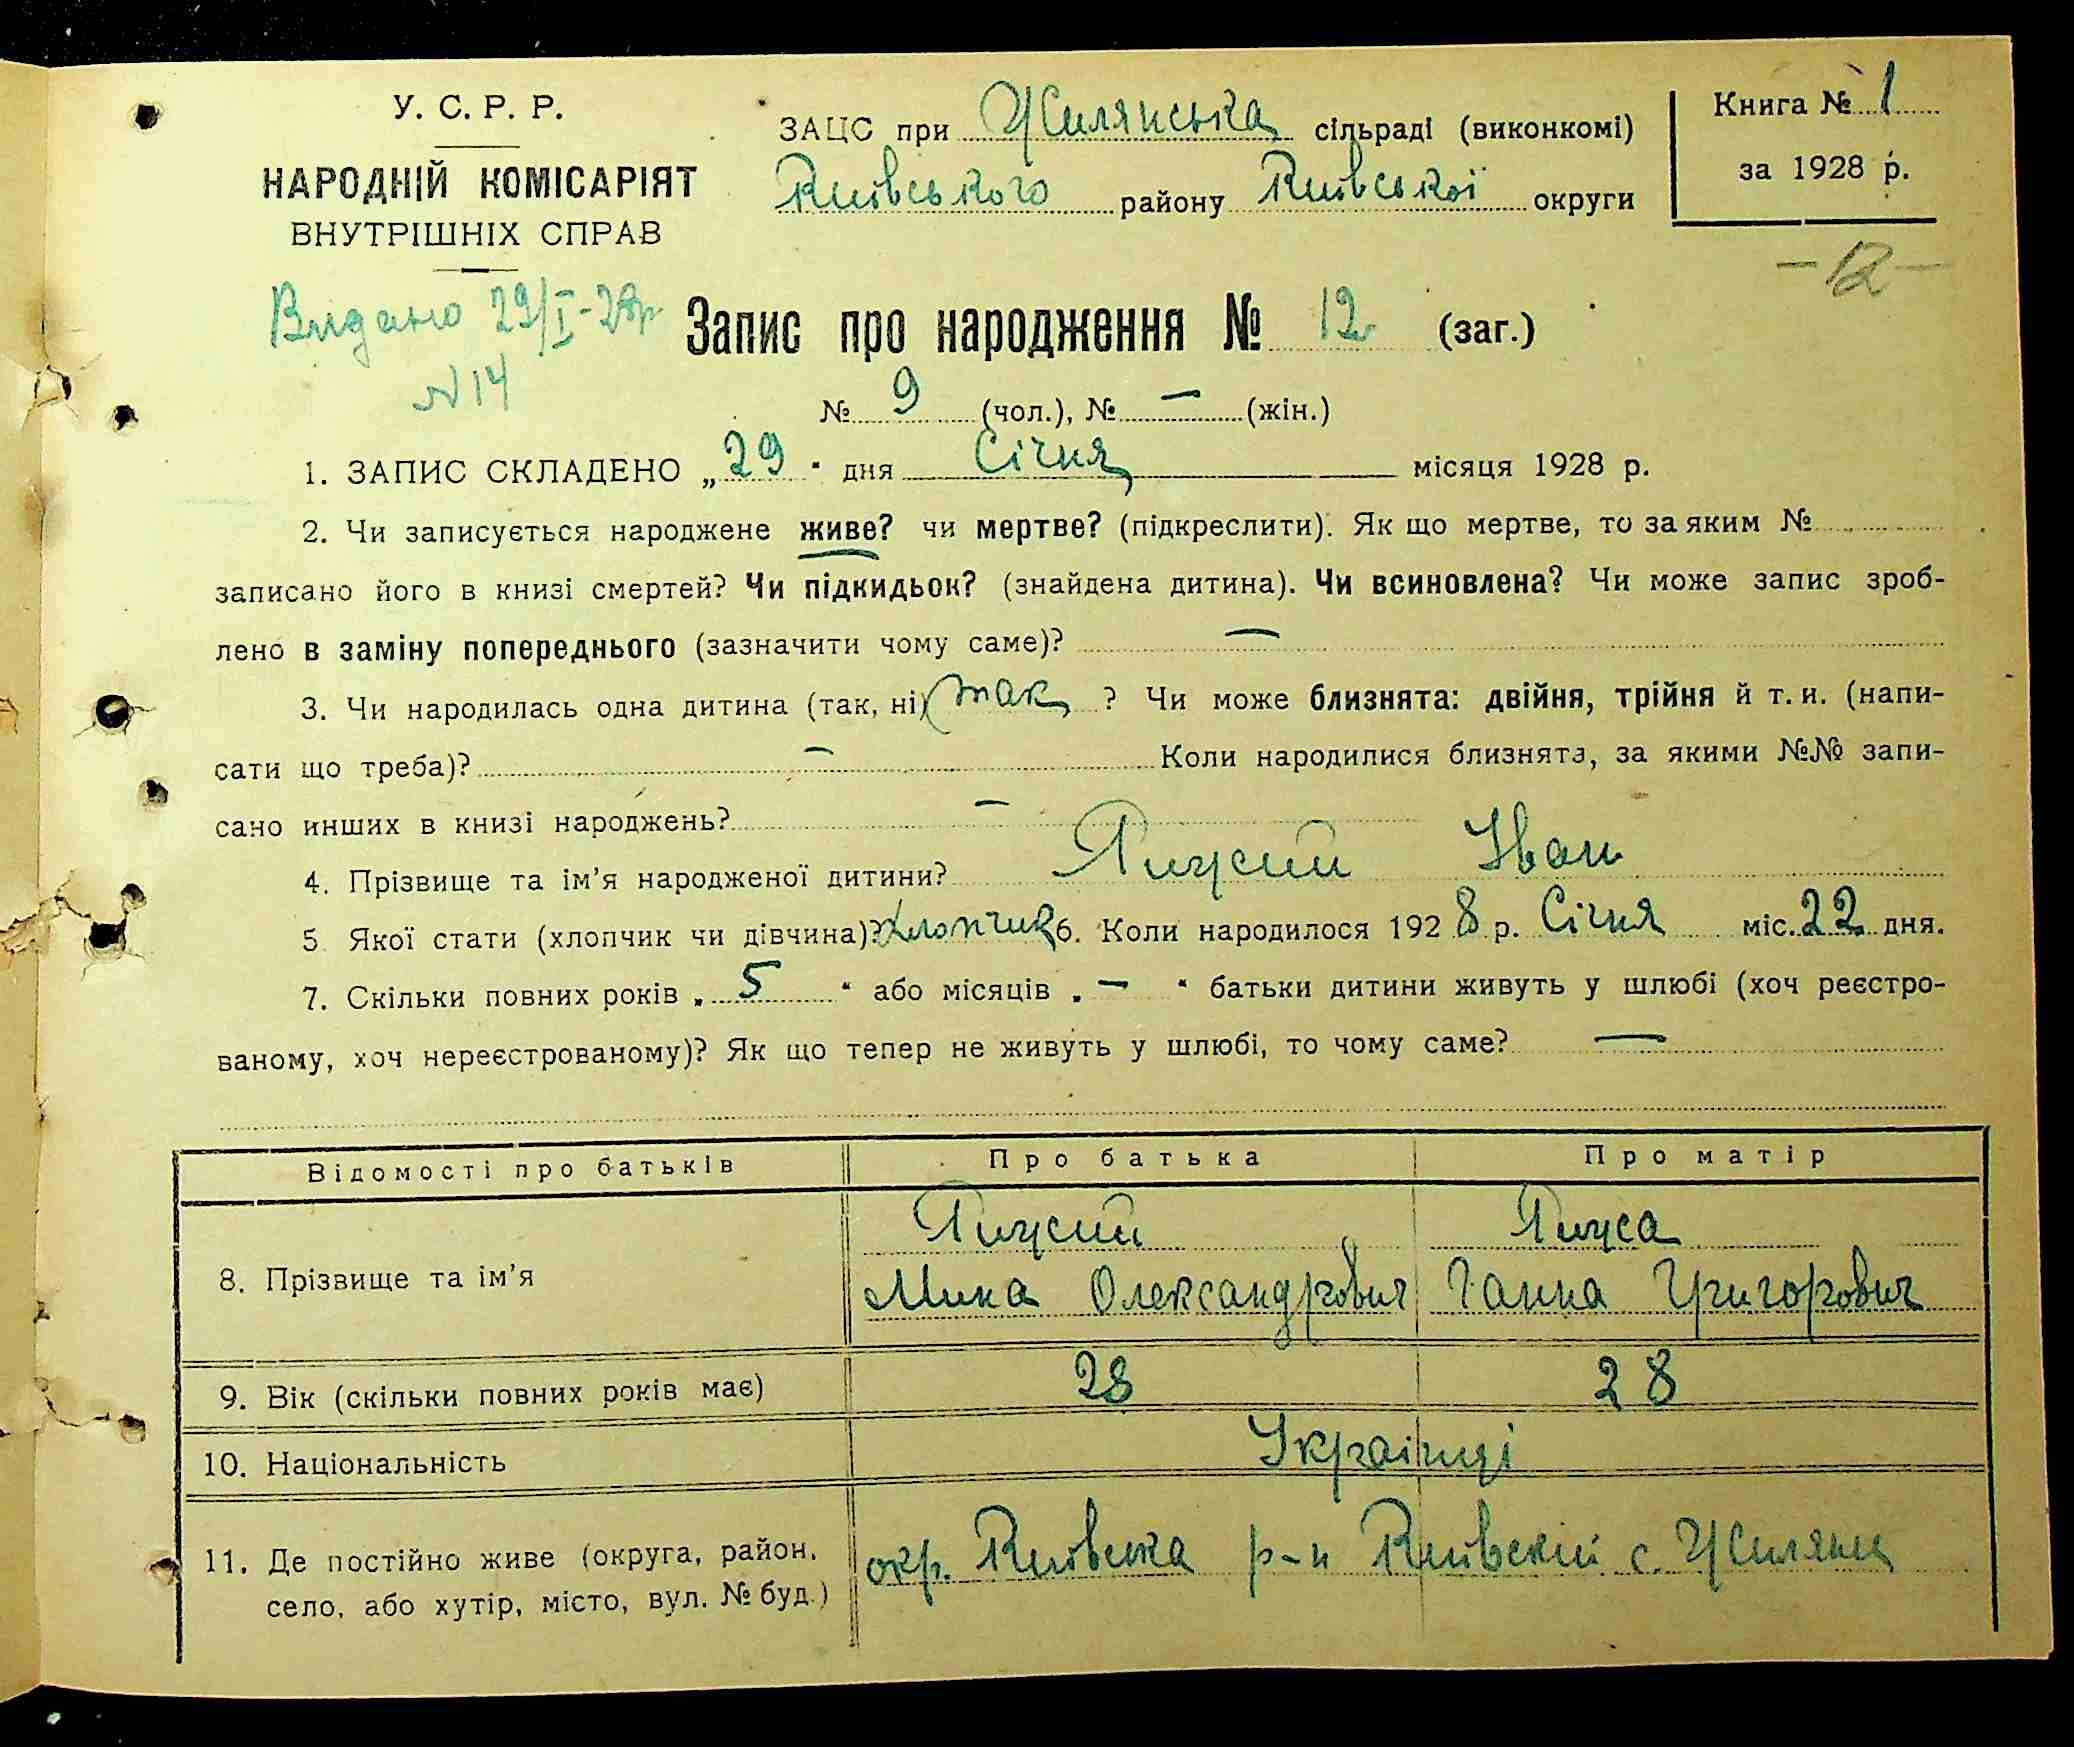 У. С. Р. Р.
НАРОДНІЙ КОМІСАРІЯТ
ВНУТРІШНІХ СПРАВ
ЗАЦС при Жилянська сільраді (виконкомі)
Київського району Київської округи
Книга № 1
за 1928 р.
-12-
Видано 29/I-28р
N 14
Запис про народження № 12 (заг.)
№ 9 (чол.), № — (жін.)
1. ЗАПИС СКЛАДЕНО „29" дня Січня місяця 1928 р.
2. Чи записується народжене живе? чи мертве? (підкреслити). Як що мертве, то за яким №
записано його в книзі смертей? Чи підкидьок? (знайдена дитина). Чи всиновлена? Чи може запис зроб-
лено в заміну попереднього (зазначити чому саме)? —
3. Чи народилась одна дитина (так, ні) так ? Чи може близнята: двійня, трійня й т. и. (напи-
сати що треба)? — Коли народилися близнята, за якими №№ запи-
сано инших в книзі народжень? —
4. Прізвище та ім'я народженої дитини? Іван
5. Якої стати (хлопчик чи дівчина)? Хлопчик 6. Коли народилося 1928 р. Січня міс. 22 дня.
7. Скільки повних років „5" або місяців „—" батьки дитини живуть у шлюбі (хоч реєстро-
ваному, хоч нереєстрованому)? Як що тепер не живуть у шлюбі, то чому саме? —
Відомості про батьків Про батька Про матір
8. Прізвище та ім'я
Мина Олександрович Ганна Григорович
9. Вік (скільки повних років має) 28 28
10. Національність Українці
11. Де постійно живе (округа, район, село, або хутір, місто, вул. № буд.) окр. Київська р-н Київский с. Жиляни